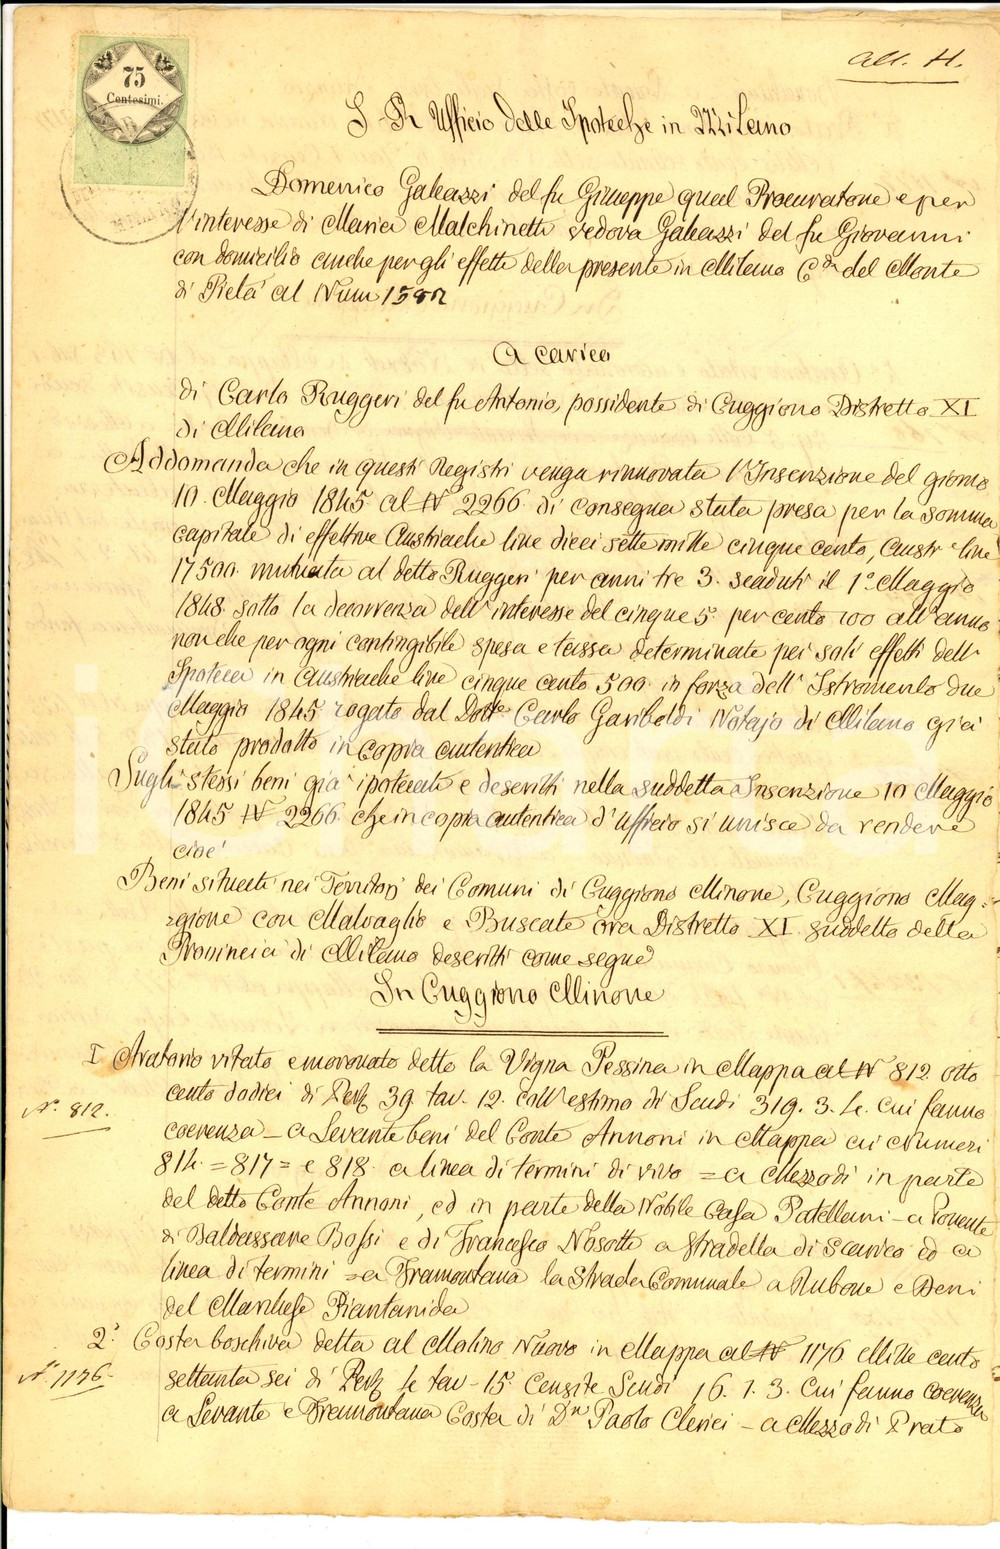 All. H.
75
Centesimi.
I. R. Ufficio delle Ipoteche in Milano
Domenico Galeazzi del fu Giuseppe qual Procuratore e per
l'interesse di Maria Malchinetti vedova Galeazzi del fu Giovanni
con domicilio anche per gli effetti della presente in Milano Cda del Monte
di Pietà al Num 1582
A carico
di Carlo Ruggeri del fu Antonio, possidente di Cuggiono Distretto XI
di Milano
Addomanda che in questi Registri venga rinnovata l'Inscrizione del giorno
10. Maggio 1845 al N 2266 di consegna stata presa per la somma
capitale di effettive Austriache lire dieci sette mille cinque cento, Austr.e lire
17500. mutuata al detto Ruggeri per anni tre 3. scaduti il 1.o Maggio
1848 sotto la decorrenza dell'interesse del cinque 5. per cento 100 all'anno
non che per ogni contingibile spesa e tassa determinate pei soli effetti dell'
Ipoteca in Austriache lire cinque cento 500. in forza dell'Istromento due
Maggio 1845 rogato dal Dotte Carlo Gariboldi Notajo di Milano già
stato prodotto in copia autentica
Sugli stessi beni già ipotecati e descritti nella suddetta Inscrizione 10 Maggio
1845 N 2266. che in copia autentica d'Ufficio si unisce da rendere
cioè
Beni situati nei Territorj dei Comuni di Cuggiono Minore, Cuggiono Mag=
=gione con Malvaglio e Buscate ora Distretto XI. suddetto della
Provincia di Milano descritti come segue
In Cuggiono Minore
I Aratorio vitato e moronato detto la Vigna Pessina in Mappa al N 812. otto
N.o 812.
cento dodici di Per. 39. tav. 12. coll'estimo di Scudi 319. 3. 4. cui fanno
coerenza - a Levante beni del Conte Annoni in Mappa ai Numeri
814. = 817 = e 818. a linea di termini di vivo = a Mezzodì in parte
del detto Conte Annoni, ed in parte della Nobile Casa Patellani - a Ponente
di Baldassare Bossi e di Francesco Nosotti a stradella di scarico ed a
linea di termini = a Tramontana la strada Comunale a Rubone e Beni
del Marchese Piantanida
2.o Costa boschiva detta al Molino Nuovo in Mappa al N 1176 Mille cento
N.o 1176.
settanta sei di Per. 4 tav. 15. Censite Scudi 16. 1. 3. Cui fanno coerenza
a Levante e Tramontana Costa di Dn Paolo Clerici - a Mezzodì Prato